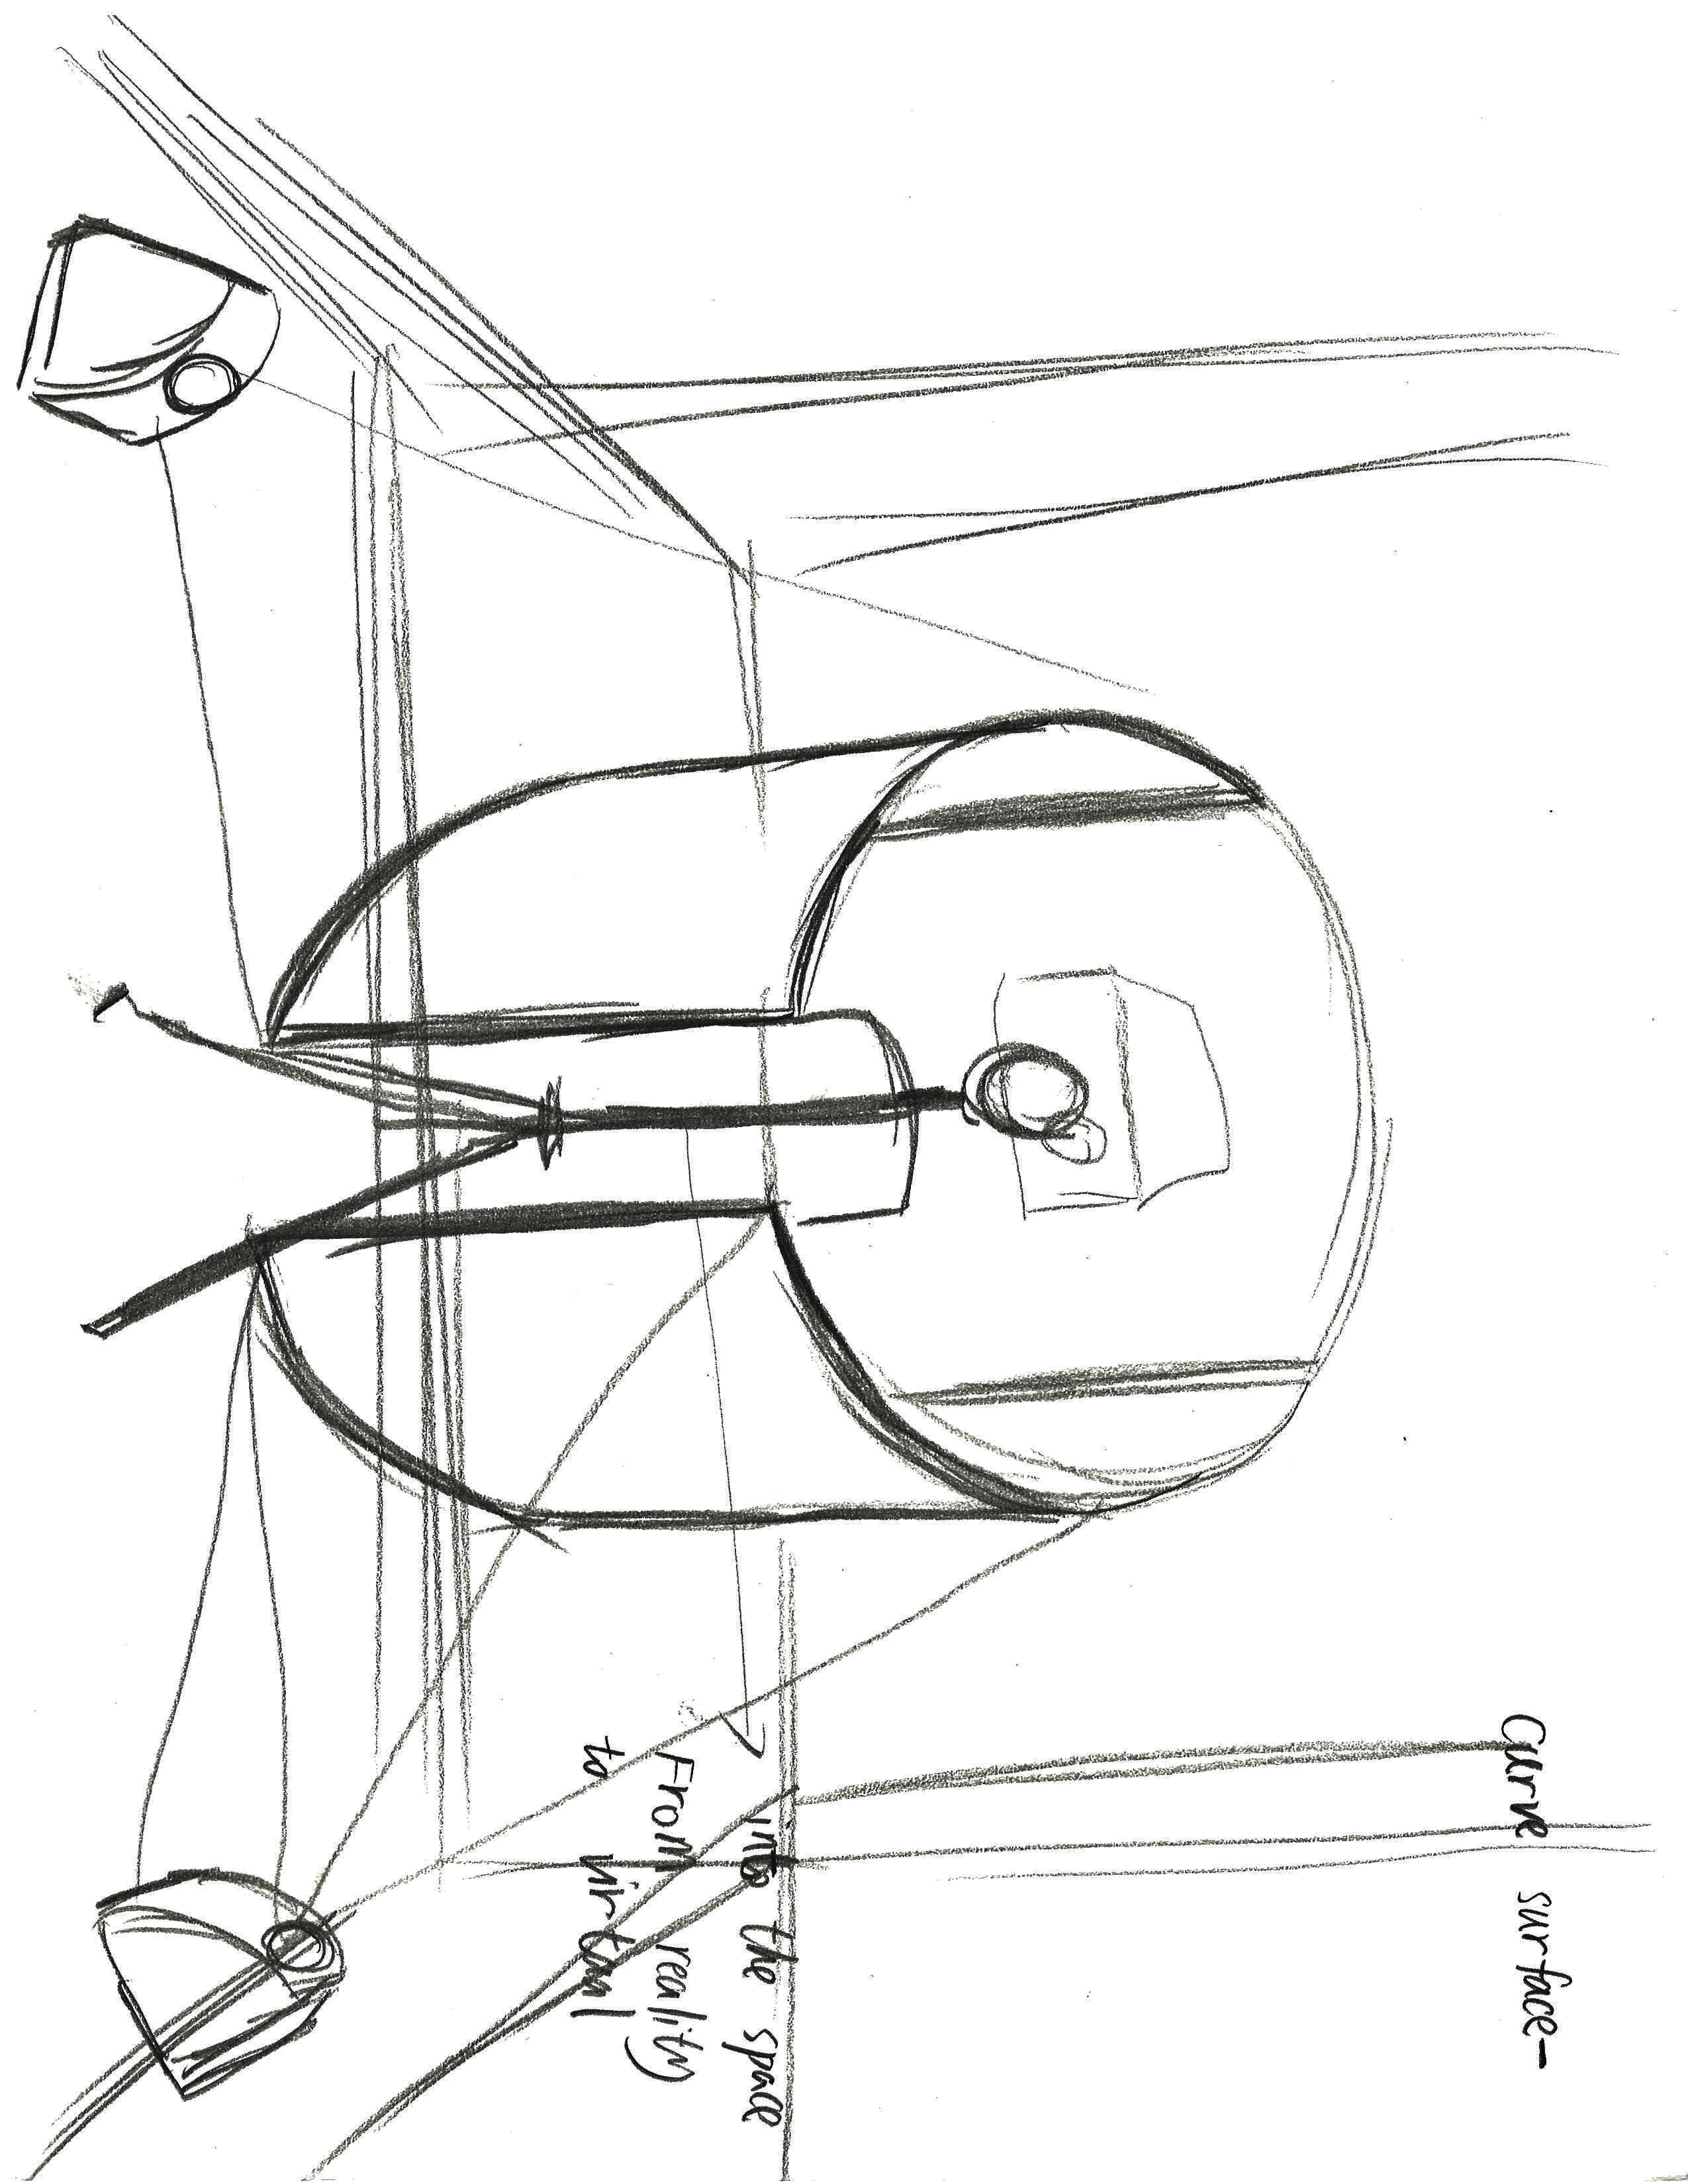 Curve surface-
into the space
From reality
to virtual